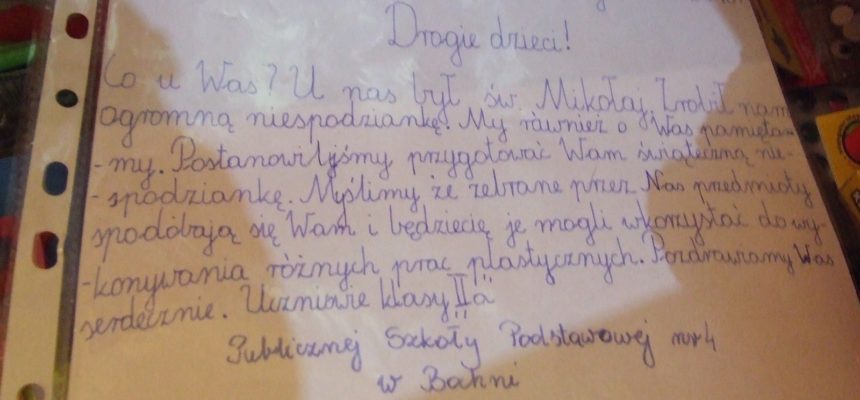 Drogie dzieci!
Co u Was? U nas był św. Mikołaj. Zrobił nam
ogromną niespodziankę. My również o Was pamięta-
-my. Postanowiłyśmy przygotować Wam świąteczną nie-
-spodziankę. Myślimy że zebrane przez Nas przedmioty
spodobają się Wam i będziecie je mogli wkorzystać do wy-
-konywania różnych prac plastycznych. Pozdrawiamy Was
serdecznie. Uczniowie klasy II a
Publicznej Szkoły Podstawowej nr 4
w Bochni